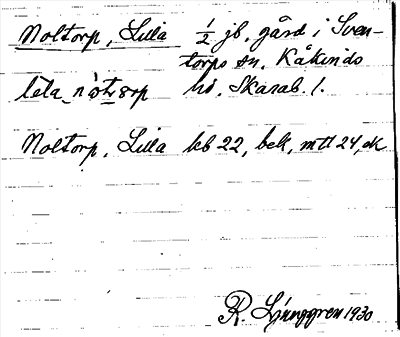 Noltorp, Lilla 1/2 jb. gård i Sven-
torps sn, Kåkinds
hd, Skarab. l.
Noltorp, Lilla kb 22, bek, mtl 24, ek
R. Ljunggren 1930